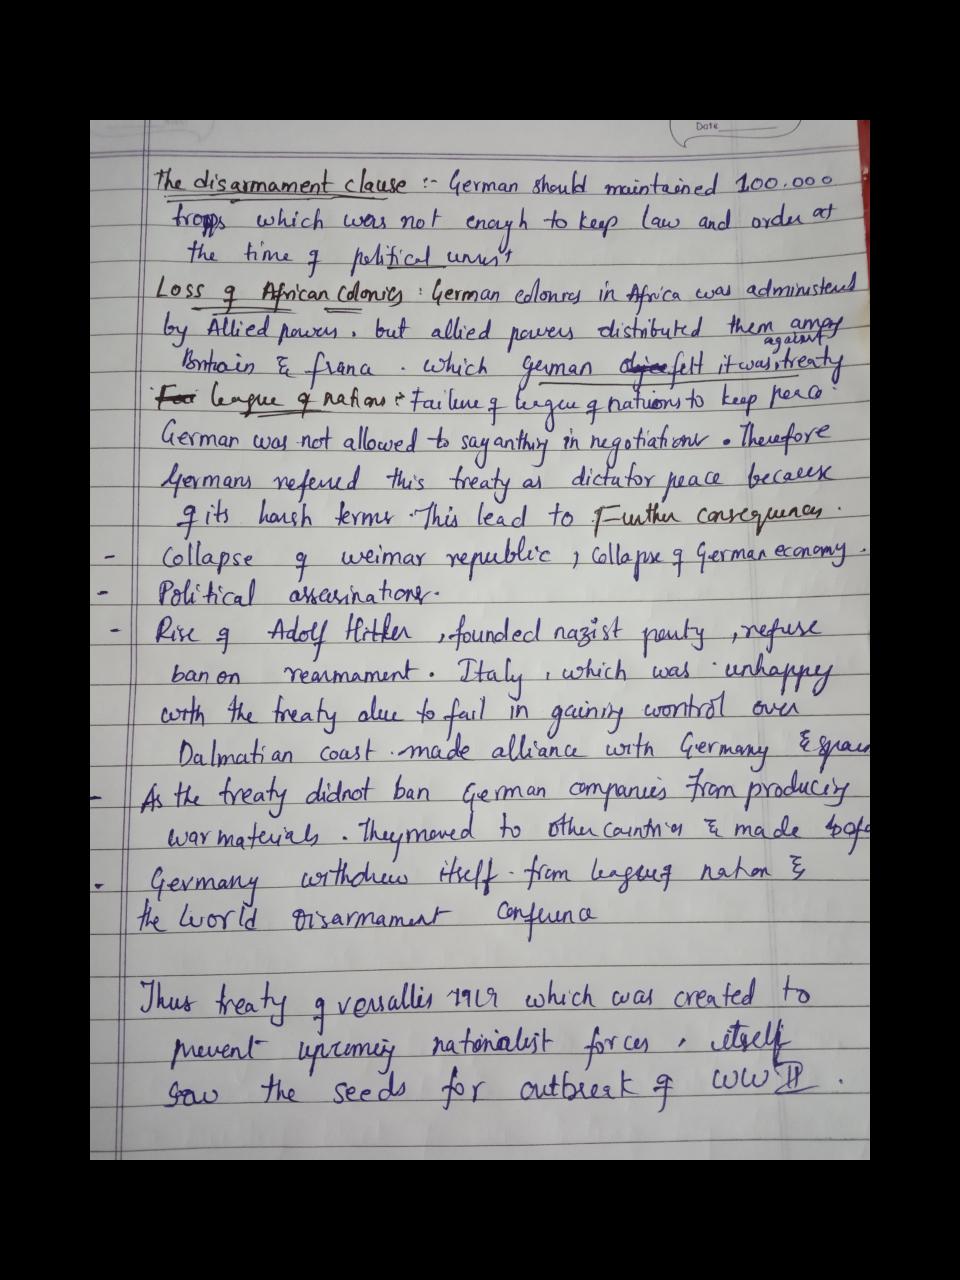 Date
The disarmament clause :- German should maintained 100.000
tropps which was not enogh to keep law and order at
the time of political unrest
Loss of African Colonies : German colonies in Africa was administerd
by Allied powers. but allied powers distributed them among
against
Britain & france . which german felt it was treaty
league of nations :- Failure of league of nations to keep peace.
German was not allowed to say anthing in negotiations . Therefore
Germans referred this treaty as dictator peace because
of its harsh terms. This lead to Further consequences.
- Collapse of weimar republic , Collapse of German economy.
- Political assasinations.
- Rise of Adolf Hitler , founded nazist party , refuse
ban on rearmament . Italy , which was unhappy
with the treaty due to fail in gaining wontrol over
Dalmatian coast . made alliance with Germany &
- As the treaty didnot ban German companies from producing
war materials . They moved to other countries & made
- Germany withdrew itself . from league of nation &
the World Disarmament Conference
Thus treaty of versallis 1919 which was created to
prevent upcoming nationalist forces , itself
sow the seeds for outbreak of WW II .